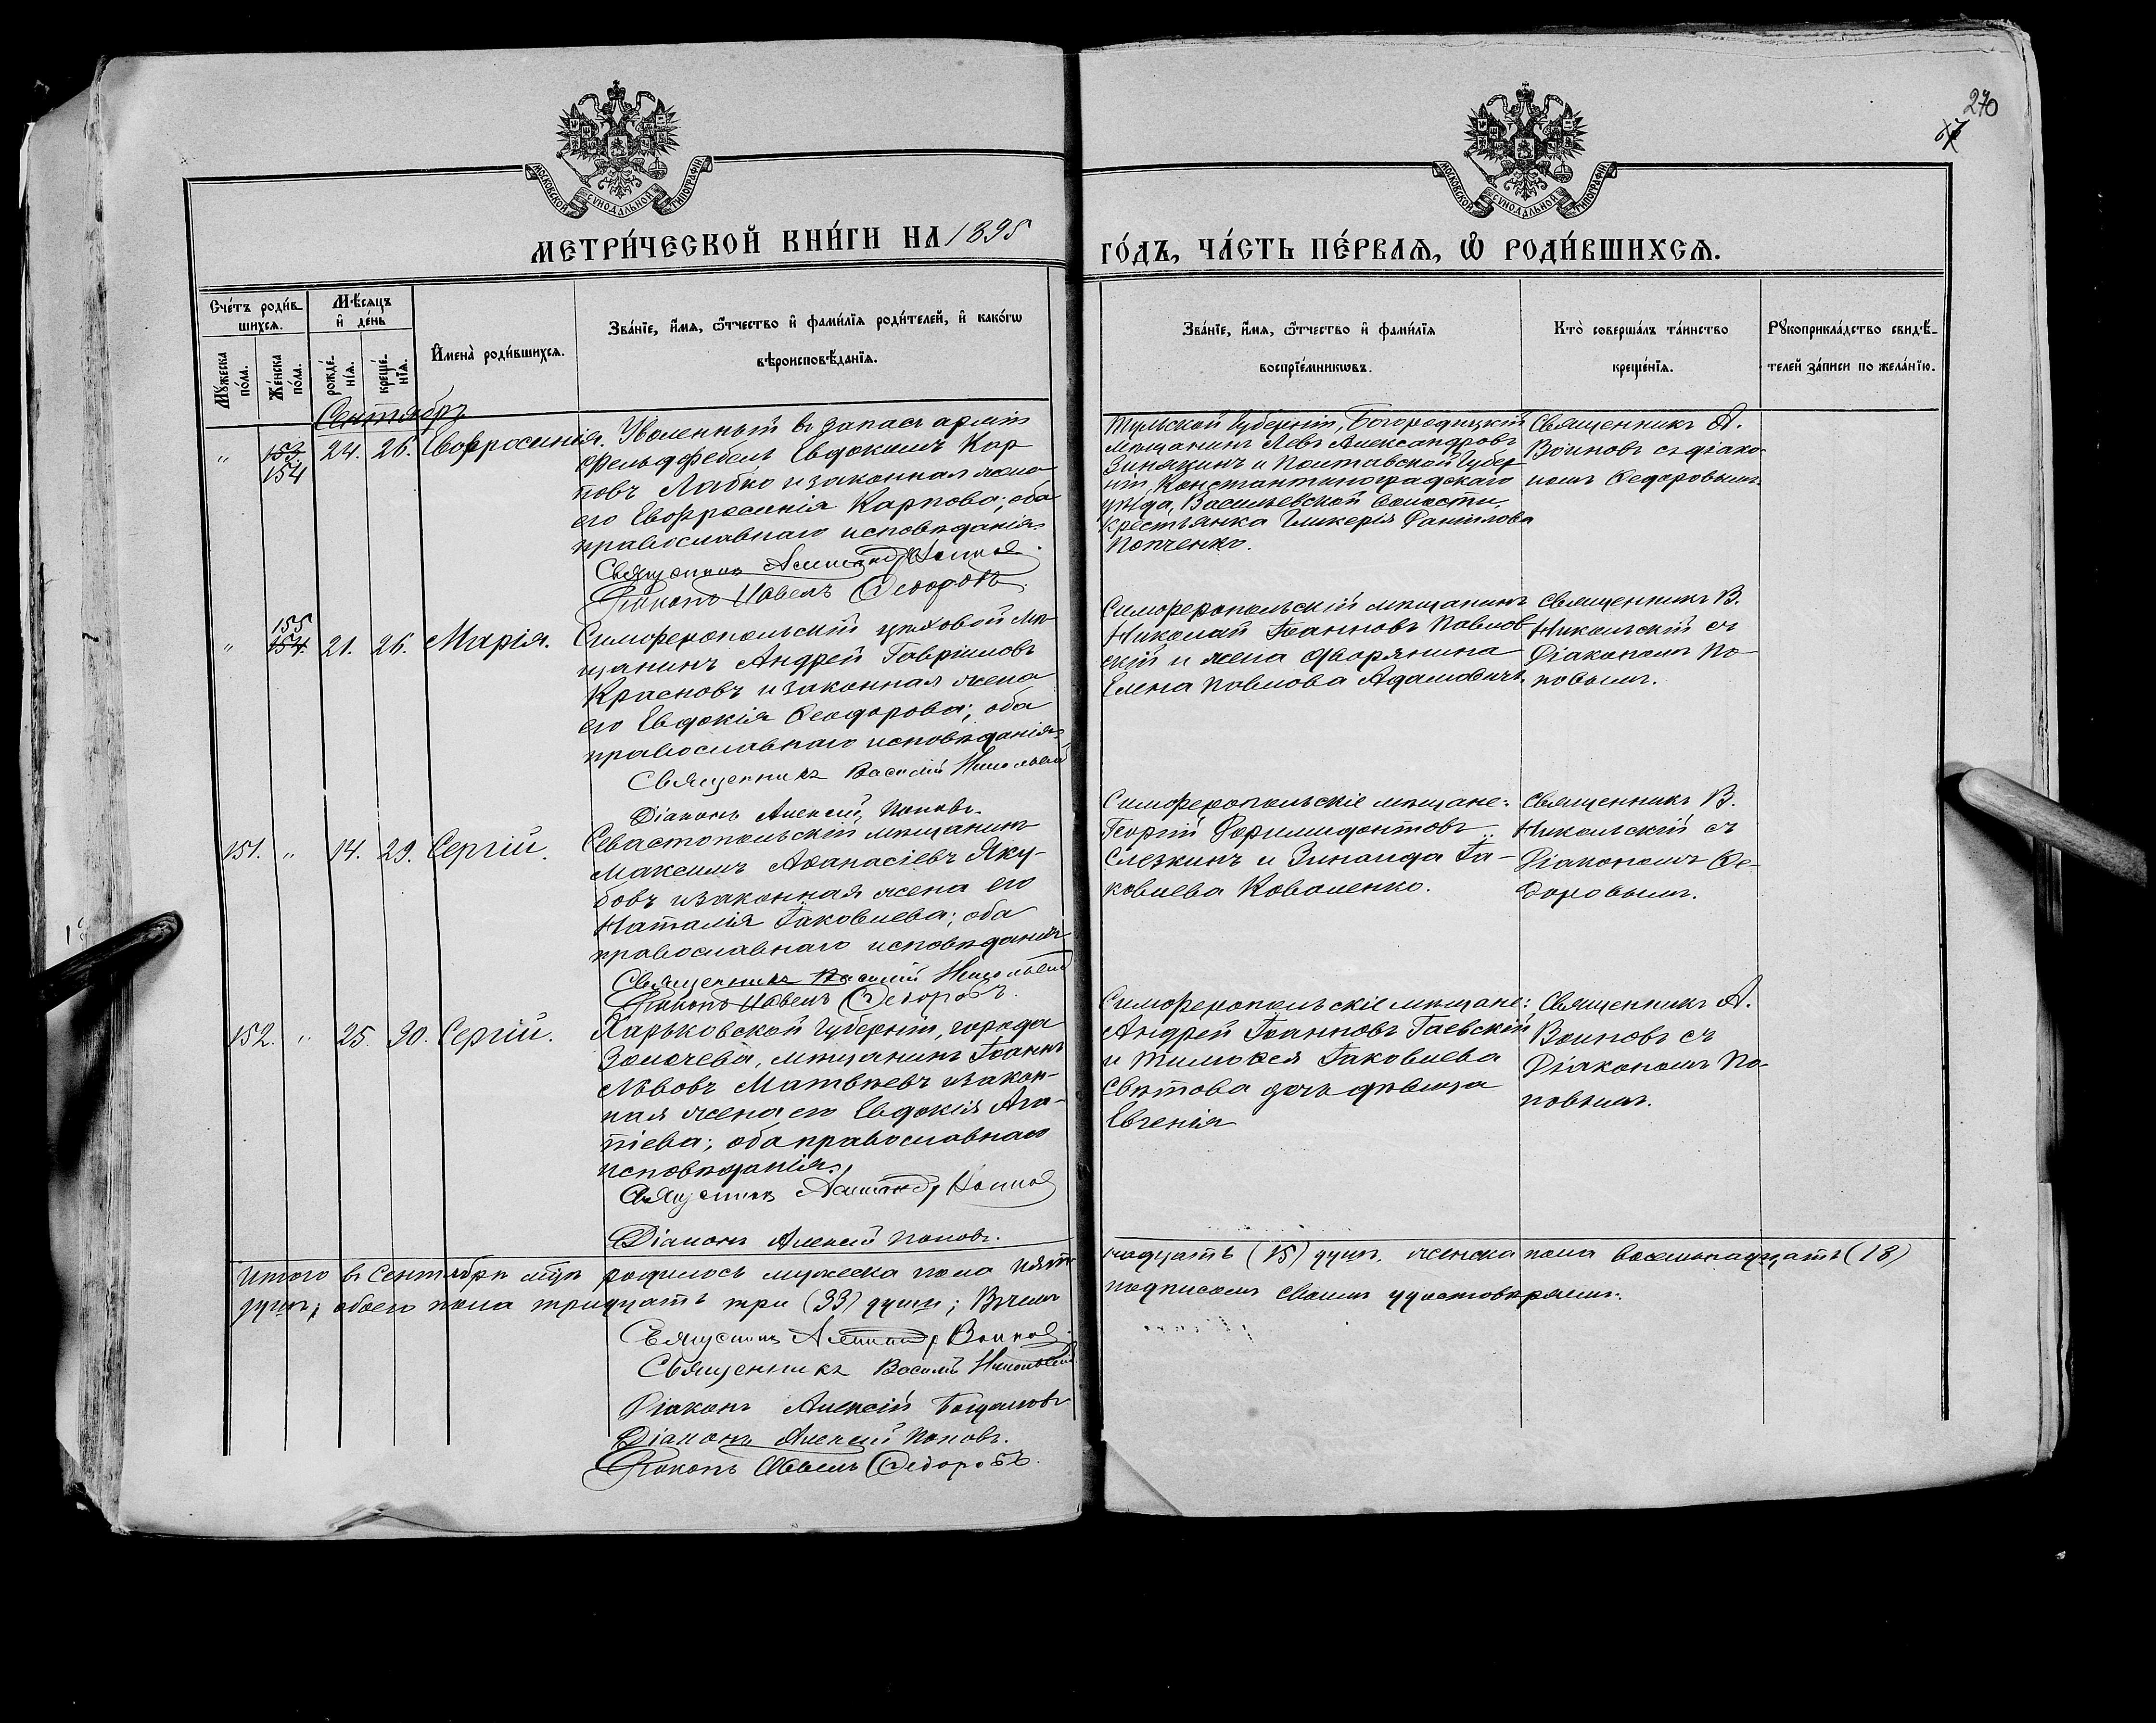 270
МОСКОВСКОЙ СѴНОДАЛЬНОЙ ТИПОГРАФІИ
МОСКОВСКОЙ СѴНОДАЛЬНОЙ ТИПОГРАФІИ
МЕТРИ́ЧЕСКОЙ КНИ́ГИ НА 1895
ГО́ДЪ, ЧА́СТЬ ПЕ́РВАЯ, Ѡ РОДИ́ВШИХСЯ.
Сче́тъ роди́в-
шихся.
Мꙋжеска по́ла.
Же́нска по́ла.
Мѣ́сяцъ и де́нь
рожде́-нїя.
креще́-нїя.
Имена̀ роди́вшихся.
Зва́нїе, и́мя, ѻ́тчество и фами́лїя роди́телей, и како́гѡ
вѣроисповѣ́данїя.
Зва́нїе, и́мя, ѻ́тчество и фами́лїя
воспрїе́мникѡвъ.
Кто̀ соверша́лъ та́инство
креще́нїя.
Рꙋкоприкла́дство свидѣ́-
телей за́писи по жела́нїю.
Сентябрь
„ 153. 154 24. 26. Евфросинія.
Уволенный въ запасъ арміи
фельдфебель Евдокимъ Кар
повъ Лабко и законная жена
его Евфросинія Карпова; оба
православнаго исповѣданія.
Священникъ Александръ Воиновъ
Діаконъ Павелъ Ѳедоровъ.
Тульской Губерніи, Богородицкій
мѣщанинъ Левъ Александровъ
Зинякинъ и Полтавской Губер
ніи, Константиноградскаго
уѣзда, Васильевской волости,
крестьянка Гликерія Даніилова
Попченко.
Священникъ А.
Воиновъ съ діако-
номъ Ѳедоровымъ.
„ 155 154. 21. 26. Марія.
Симферопольскій цеховой мѣ-
щанинъ Андрей Гавріиловъ
Красновъ и законная жена
его Евдокія Ѳеодорова; оба
православнаго исповѣданія.
Священникъ Василій Никольскій
Діаконъ Алексій Поповъ.
Симферопольскій мѣщанинъ
Николай Іоанновъ Павлов
скій и жена дворянина
Елена Павлова Адамовичъ.
Священникъ В.
Никольскій съ
Діакономъ По-
повымъ.
151. „ 14. 29. Сергій.
Севастопольскій мѣщанинъ
Максимъ Аѳанасіевъ Яку-
бовъ и законная жена его
Наталія Іаковлева; оба
православнаго исповѣданія.
Священникъ Василій Никольскій
Діаконъ Павелъ Ѳедоровъ.
Симферопольскіе мѣщане:
Георгій
Слезкинъ и Зинаида Іа-
ковлева Коваленко.
Священникъ В.
Никольскій съ
Діакономъ Ѳе-
доровымъ.
152. „ 25. 30. Сергій.
Харьковской Губерніи, города
Золочева, мѣщанинъ Іоаннъ
Львовъ Матвѣевъ и закон-
ная жена его Евдокія Ага-
піева; оба православнаго
исповѣданія.
Священникъ Александръ Воиновъ
Діаконъ Алексій Поповъ.
Симферопольскіе мѣщане:
Андрей Іоанновъ Гаевскій
и Тимоѳея Іаковлева
Свѣтова дочь дѣвица
Евгенія
Священникъ А.
Воиновъ съ
Діакономъ По-
повымъ.
Итого въ Сентябрѣ м-цѣ родилось мужеска пола пят-
надцать (15) душъ, женска пола восемьнадцать (18)
душъ; обоего пола тридцать три (33) души; В чемъ
подписомъ своимъ удостовѣряемъ:
Священникъ Александръ Воиновъ.
Священникъ Василій Никольскій
Діаконъ Алексій Богдановъ
Діаконъ Алексій Поповъ.
Діаконъ Павелъ Ѳедоровъ.